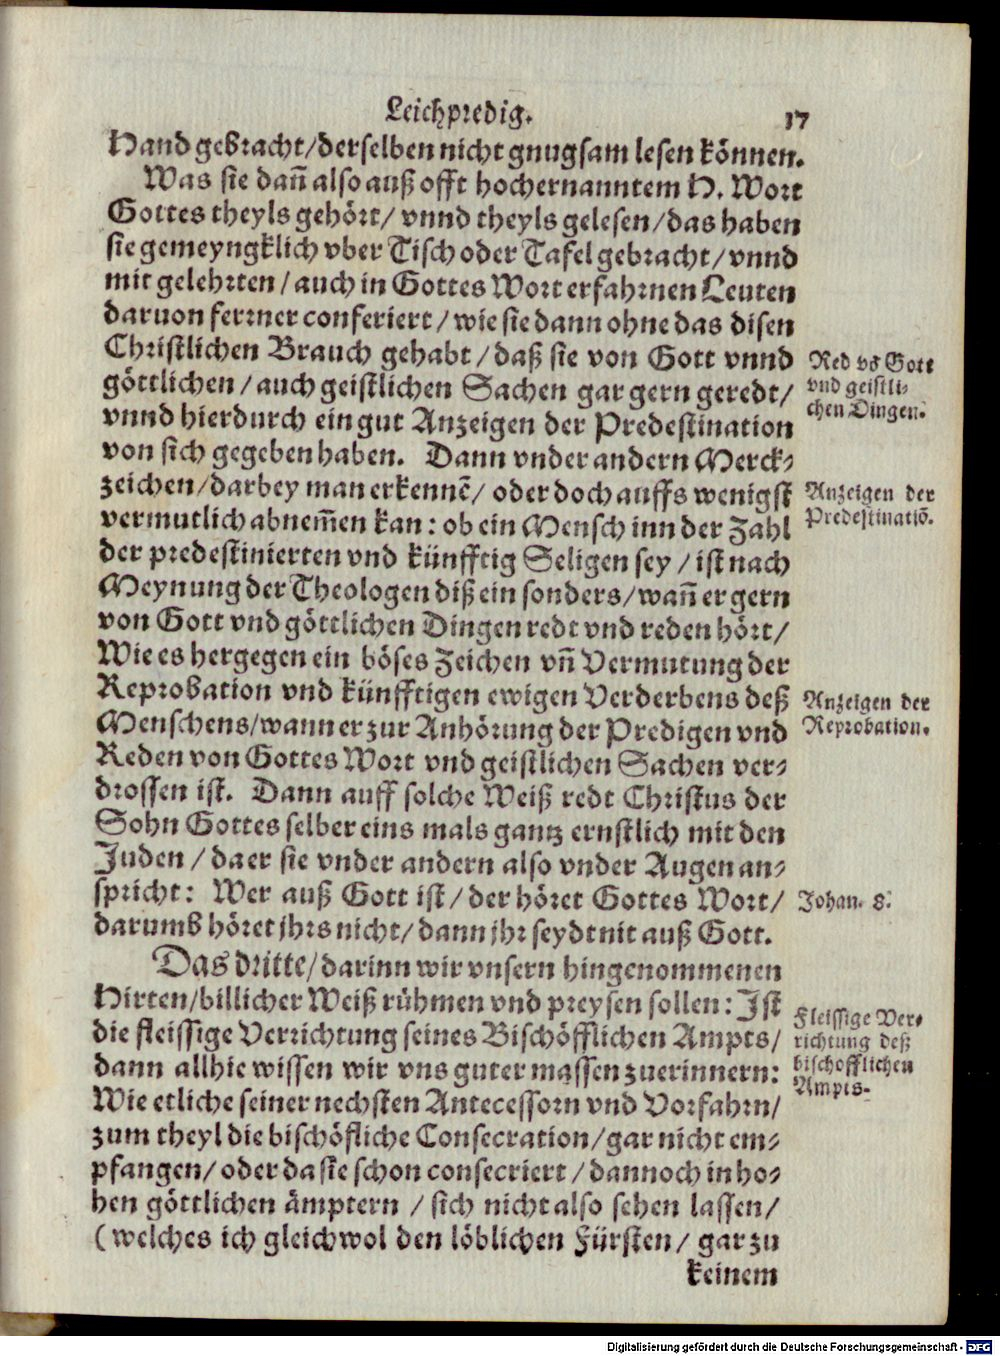 Leichpredig. 17
Hand gebracht/derselben nicht gnugsam lesen können.
Was sie dañ also auß offt hochernanntem H. Wort
Gottes theyls gehört/ vnnd theyls gelesen/das haben
sie gemeyngklich vber Tisch oder Tafel gebracht/vnnd
mit gelehrten/auch in Gottes Wort erfahrnen Leuten
daruon ferrner conferiert/wie sie dann ohne das disen
Christlichen Brauch gehabt/daß sie von Gott vnnd
göttlichen/auch geistlichen Sachen gar gern geredt/
vnnd hierdurch ein gut Anzeigen der Predestination
von sich gegeben haben. Dann vnder andern Merck-
zeichen/darbey man erkennē/ oder doch auffs wenigst
vermutlich abnem̃en kan: ob ein Mensch inn der Zahl
der predestinierten vnd künfftig Seligen sey/ist nach
Meynung der Theologen diß ein sonders/wañ er gern
von Gott vnd göttlichen Dingen redt vnd reden hört/
Wie es hergegen ein böses Zeichen vñ Vermutung der
Reprobation vnd künfftigen ewigen Verderbens deß
Menschens/wann er zur Anhörung der Predigen vnd
Reden von Gottes Wort vnd geistlichen Sachen ver-
drossen ist. Dann auff solche Weiß redt Christus der
Sohn Gottes selber eins mals gantz ernstlich mit den
Juden/da er sie vnder andern also vnder Augen an-
spricht: Wer auß Gott ist/der höret Gottes Wort/
darumb höret jhrs nicht/dann jhr seydt nit auß Gott.
Das dritte/darinn wir vnsern hingenommenen
Hirten/billicher Weiß rühmen vnd preysen sollen: Ist
die fleissige Verrichtung seines Bischöfflichen Ampts/
dann allhie wissen wir vns guter massen zuerinnern:
Wie etliche seiner nechsten Antecessorn vnd Vorfahrn/
zum theyl die bischöfliche Consecration/gar nicht em-
pfangen/oder da sie schon consecriert/dannoch in ho-
hen göttlichen ämptern/sich nicht also sehen lassen/
(welches ich gleichwol den löblichen Fürsten/ gar zu
keinem
Red vō Gott
vnd geistli-
chen Dingen.
Anzeigen der
Predestinatiō.
Anzeigen der
Reprobation.
Johan. 8.
Fleissige Ver-
richtung deß
bischofflichen
Ampts.
Digitalisierung gefördert durch die Deutsche Forschungsgemeinschaft - DFG